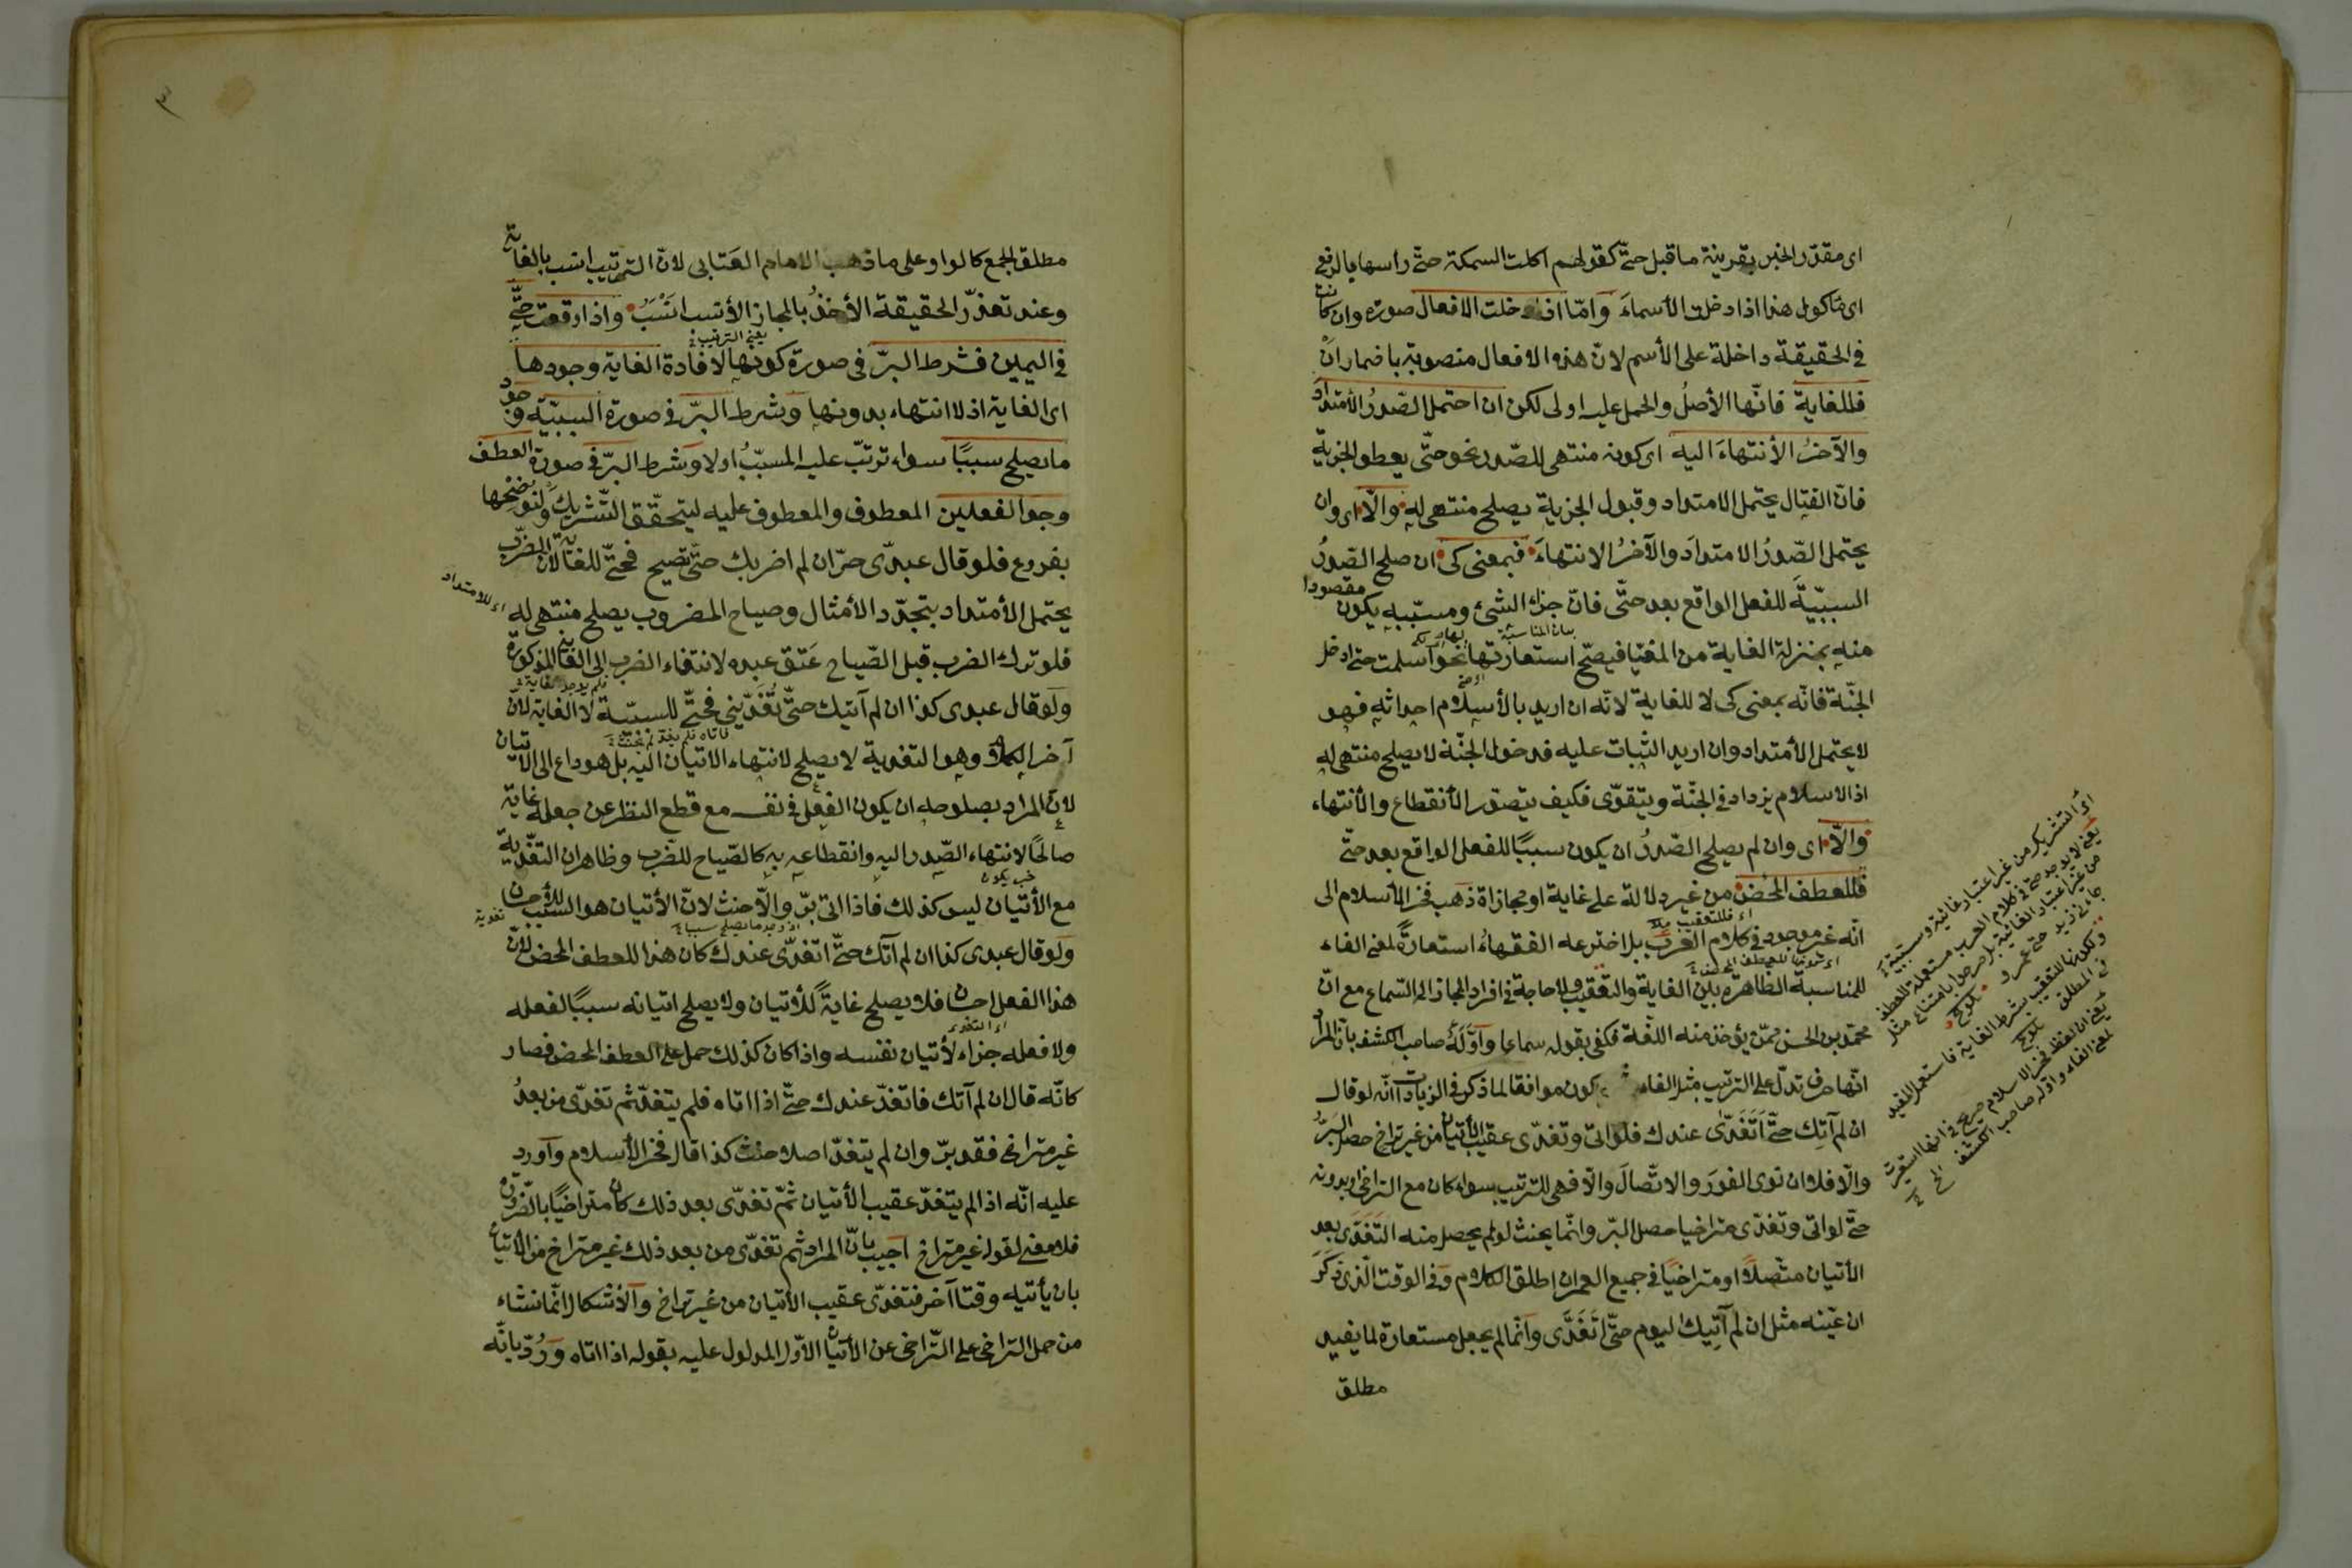 اى مقدّر الخبر بقرينة ما قبل حتّى كقولهم اكلت السمكة حتّى راسها بالرفع
اى مأكول هذا اذا دخلت الأسماءَ وَامّا اذا دخلت الافعال صورة وان كانت
فى الحقيقة داخلة على الأسم لانّ هذه الافعال منصوبة باضمار انْ
فللغاية فانّها الأصلُ والحمل عليه اولى لكن ان احتمل الصّدرُ الأمتدادَ
والآخرُ الأنتهاءَ اليه اى كونه منتهى للصّدر نحو حتّى يعطوا الجزية
فانّ القتال يحتمل الامتداد وقبول الجزية يصلح منتهى له والّا اى وان
يحتمل الصّدرُ الامتدادَ والآخرُ الانتهاءَ فبمعنى كى ان صلح الصّدرُ
السببيّةَ للفعل الواقع بعد حتّى فانّ جزاء الشئ ومسبّبه يكون مقصودا
منه بمنزلة الغاية من المغيّا فيصحّ استعارتها نحو اسلمت حتى ادخل
الجنّة فانّه بمعنى كى لا للغاية لانّه ان اريد بالأسلام احداثه فهو
لا يحتمل الأمتداد وان اريد الثبات عليه فدخول الجنّة لا يصلح منتهى له
اذ الاسلام يزداد فى الجنّة ويتقوّى فكيف يتصوّر الأنقطاع والأنتهاء
والّا اى وان لم يصلح الصّدرُ ان يكون سببًا للفعل الواقع بعد حتّى
فللعطف المحْض من غير دلالة على غاية او مجازاة ذهب فخر الأسلام الى
انّه غير موجود فى كلام العرب بل اخترعه الفقهاءُ استعارةً لمعنى الفاء
للمناسبة الظاهرة بين الغاية والتعقيب ولا حاجة فى افراد المجاز الى السّماع مع انّ
محمّد بن الحسن ممّن يؤخذ منه اللغة فكفى بقوله سماعا وَاوّلَهُ صاحب الكشف بانّ المراد
انّها حرف تدلّ على الترتيب مثل الفاء يكون موافقا لما ذكر فى الزيادات انّه لو قال
ان لم آتِك حتّى اَتَغَدّى عندك فلو اتى وتغدّى عقيب الأتيان من غير تراخ حصل البَرُّ
والّا فلا ان نوى الفورَ والاتّصالَ والّا فهى للترتيب سواء كان مع التراخى او بدونه
حتّى لو اتى وتغدّى متراخيا حصل البرّ وانّما يحنث لو لم يحصل منه التغَدّى بعد
الأتيان متّصلًا او متراخيًا فى جميع العمر ان اطلق الكلام وَفى الوقت الّذى ذكَرَ
ان عيّنه مثل ان لم آتِيك اليوم حتّى اتَغَدَّى وانّما لم يجعل مستعارة لما يفيد
مطلق
اى التشريك من غير اعتبار غائية وسببية
يعنى لا يوجد حتى فى كلام العرب مستعملة للعطف
من غير اعتبار الغائية بل صرحوا بامتناع مثل
جاءنى زيد حتى عمرو تلويح
مطلق الجمع كالواو على ما ذهب الامام العتابى لانّ الترتيب انسب بالغاية
وعند تعذّر الحقيقة الأخذُ بالمجاز الأنسب انْسَبُ واذا وقعت حتّى
فى اليمين فشرط البرّ فى صورة كونها لافادة الغاية وجودها
يعنى الترتيب
اى الغاية اذ لا انتهاء بدونها وَشرط البرّ فى صورة السببيّة وجود
ما يصلح سببًا سواء ترتّب عليه المسبّبُ اولا وَشرط البرّ فى صورة العطف
وجود الفعلين المعطوف والمعطوف عليه ليتحقّق التّشريكُ ولنوضحها
بفروع فلو قال عبدى حرّ ان لم اضربك حتّى تصيح فحتّى للغاية لانّ الضرب
يحتمل الأمتداد بتجدّد الأمثال وصياح المضروب يصلح منتهى له
اى للامتداد
فلو ترك الضرب قبل الصّياح عَتق عبده لانتفاء الضرب الى الغاية المذكورة
ولَو قال عبدى كذا ان لم آتيك حتّى تُغَدّينى فحتّى للسببيّة لا الغاية لانّ
آخر الكلام وهو التغدية لا يصلح لانتهاء الاتيان اليه بل هو داع الى الاتيان
لانّ المراد بصلوحه ان يكون الفعل فى نفسه مع قطع النظر عن جعله غاية
صالحًا لانتهاء الصّدر اليه وانقطاعه به كالصّياح للضّرب وظاهر ان التغْدية
مع الأتيان ليس كذلك فاذا اتى برّ والّا حنث لانّ الأتيان هو السّبب للأحسان
ولَو قال عبدى كذا ان لم آتك حتّى اتغدّى عندك كان هذا للعطف المحض لانّ
هذا الفعل احسان فلا يصلح غايةً للأتيان ولا يصلح اتيانه سببًا لفعله
ولا فعله جزاء لأتيان نفسه واذا كان كذلك حمل على العطف المحض فصار
كانّه قال ان لم آتك فاتغدّ عندك حتّى اذا اتاه فلم يتغدّ ثم تغدّى من بعدُ
غير متراخى فقد برّ وان لم يتغدّ اصلا حنث كذا قال فخر الأسلام وَاورد
عليه انّه اذا لم يتغدّ عقيب الأتيان ثمّ تغدّى بعد ذلك كان متراخيًا بالضّرورة
فلا معنى لقوله غير متراخ اَجيب بانّ المراد ثم تغدّى من بعد ذلك غير متراخ من الأتيان
بان يأتيه وقتا آخر فتغدّى عقيب الأتيان من غير تراخ وَالأشكال انّما نشاء
من حمل التراخى على التّراخى عن الأتيان الأوّل المدلول عليه بقوله اذا اتاه وَرُدّ بانّه